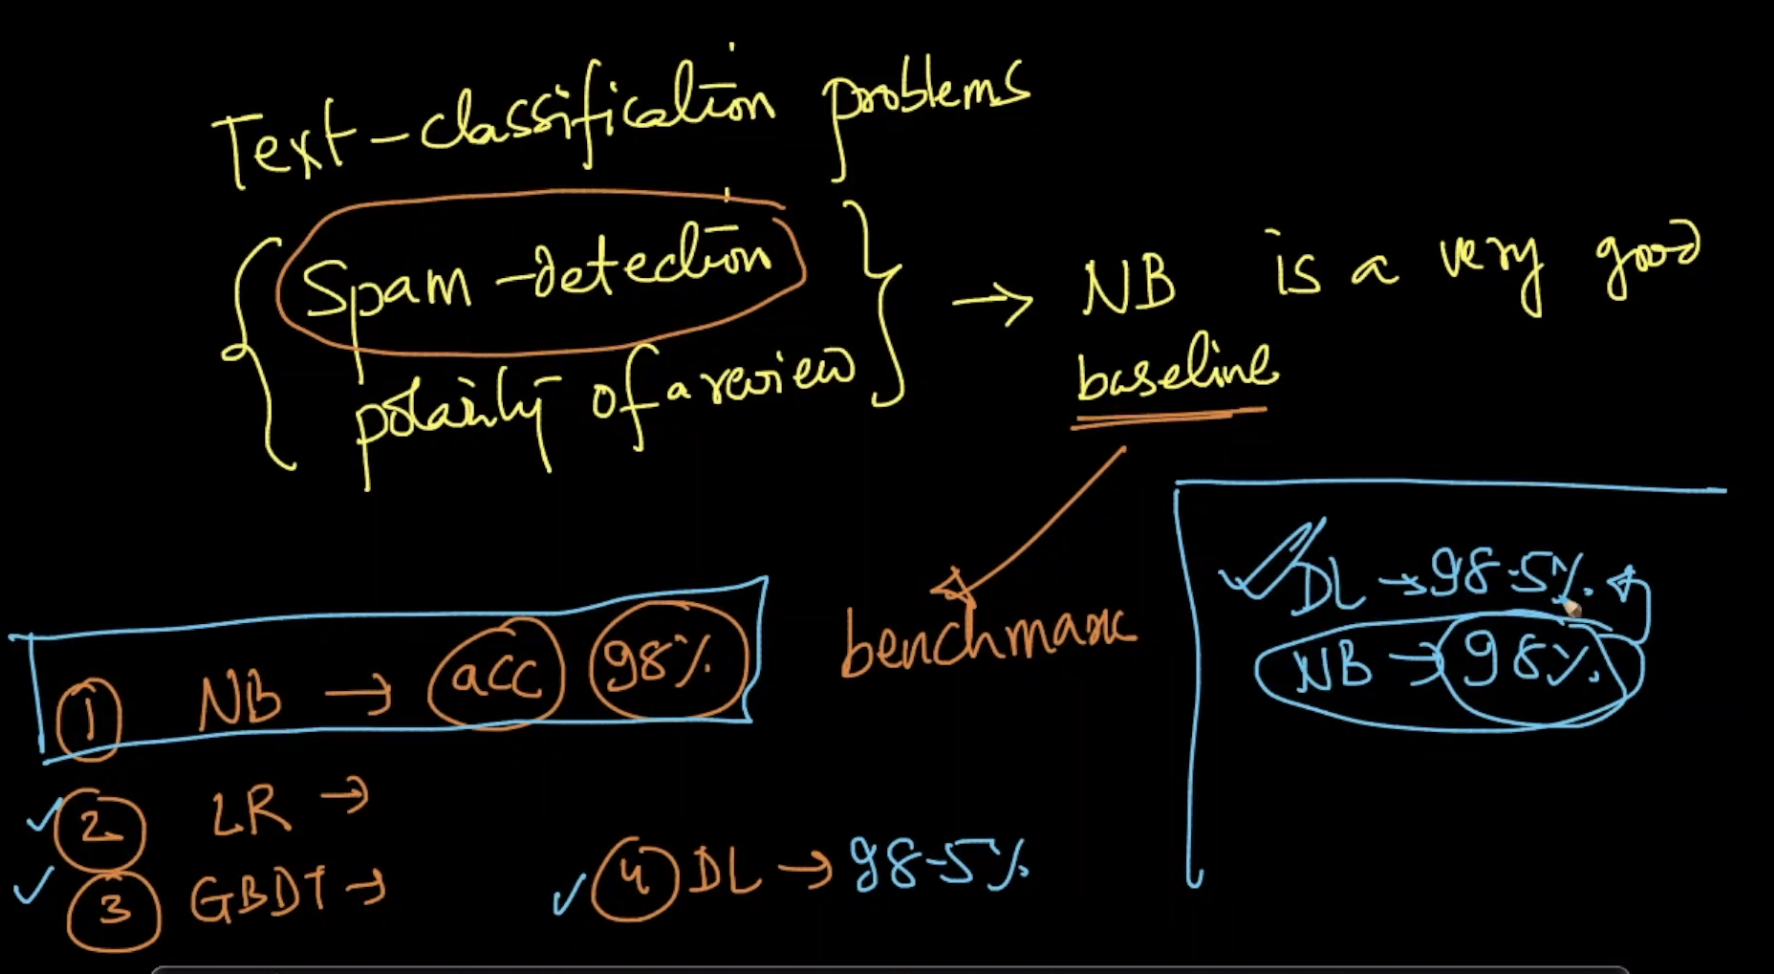 Text-classification problems
Spam-detection
polarity of a review
→ NB is a very good
baseline
benchmark
① NB → acc 98%
② LR →
③ GBDT →
④ DL → 98.5%
DL → 98.5%
NB → 98%